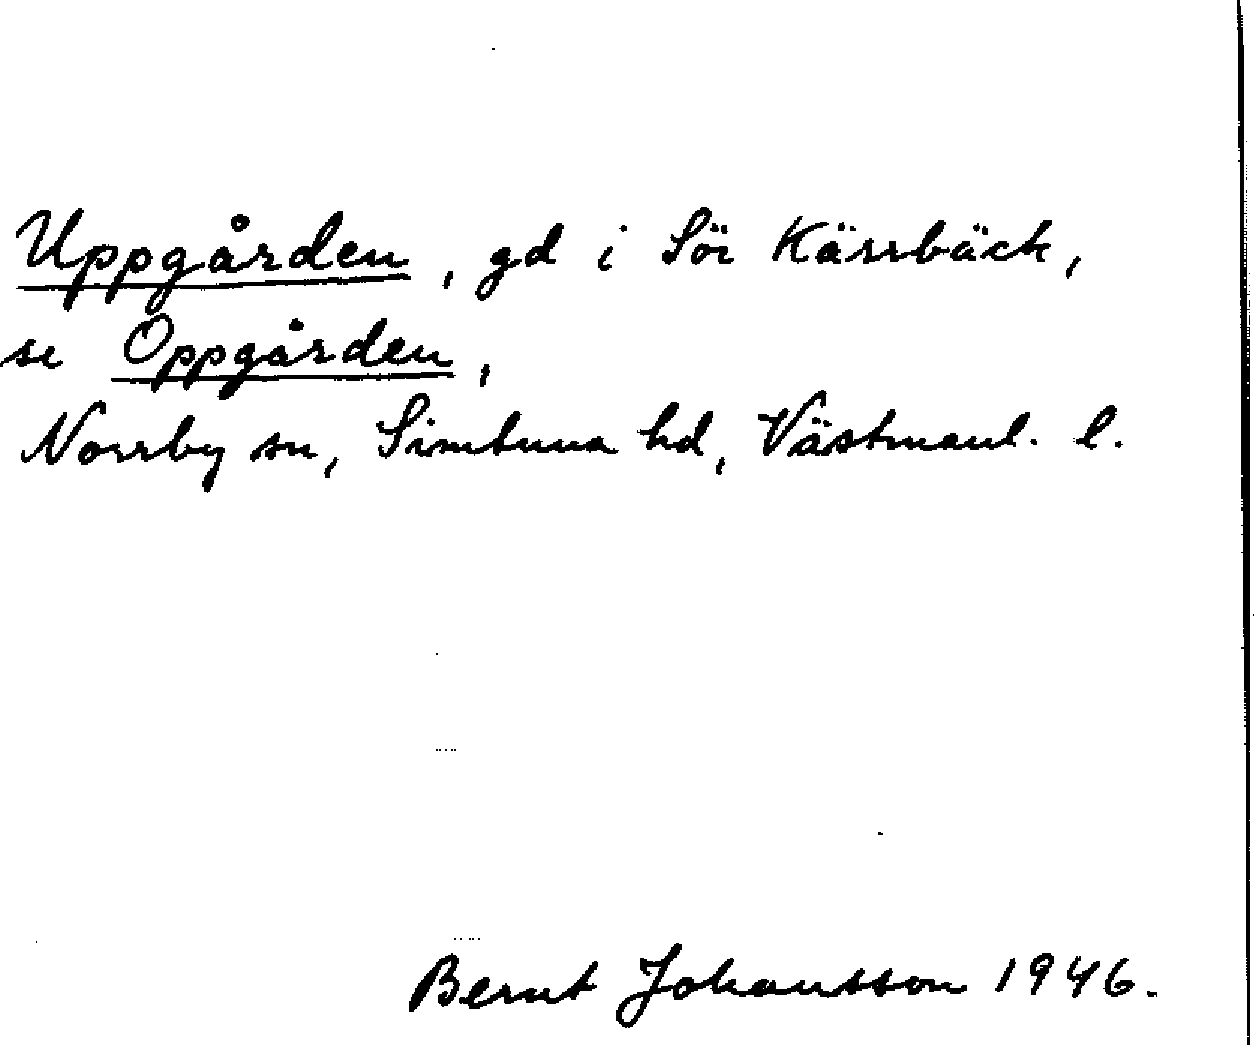 Uppgården, gd i Sör Kärrbäck,
se Oppgården,
Norrby sn, Simtuna hd, Västmanl. l.
Bernt Johansson 1946.